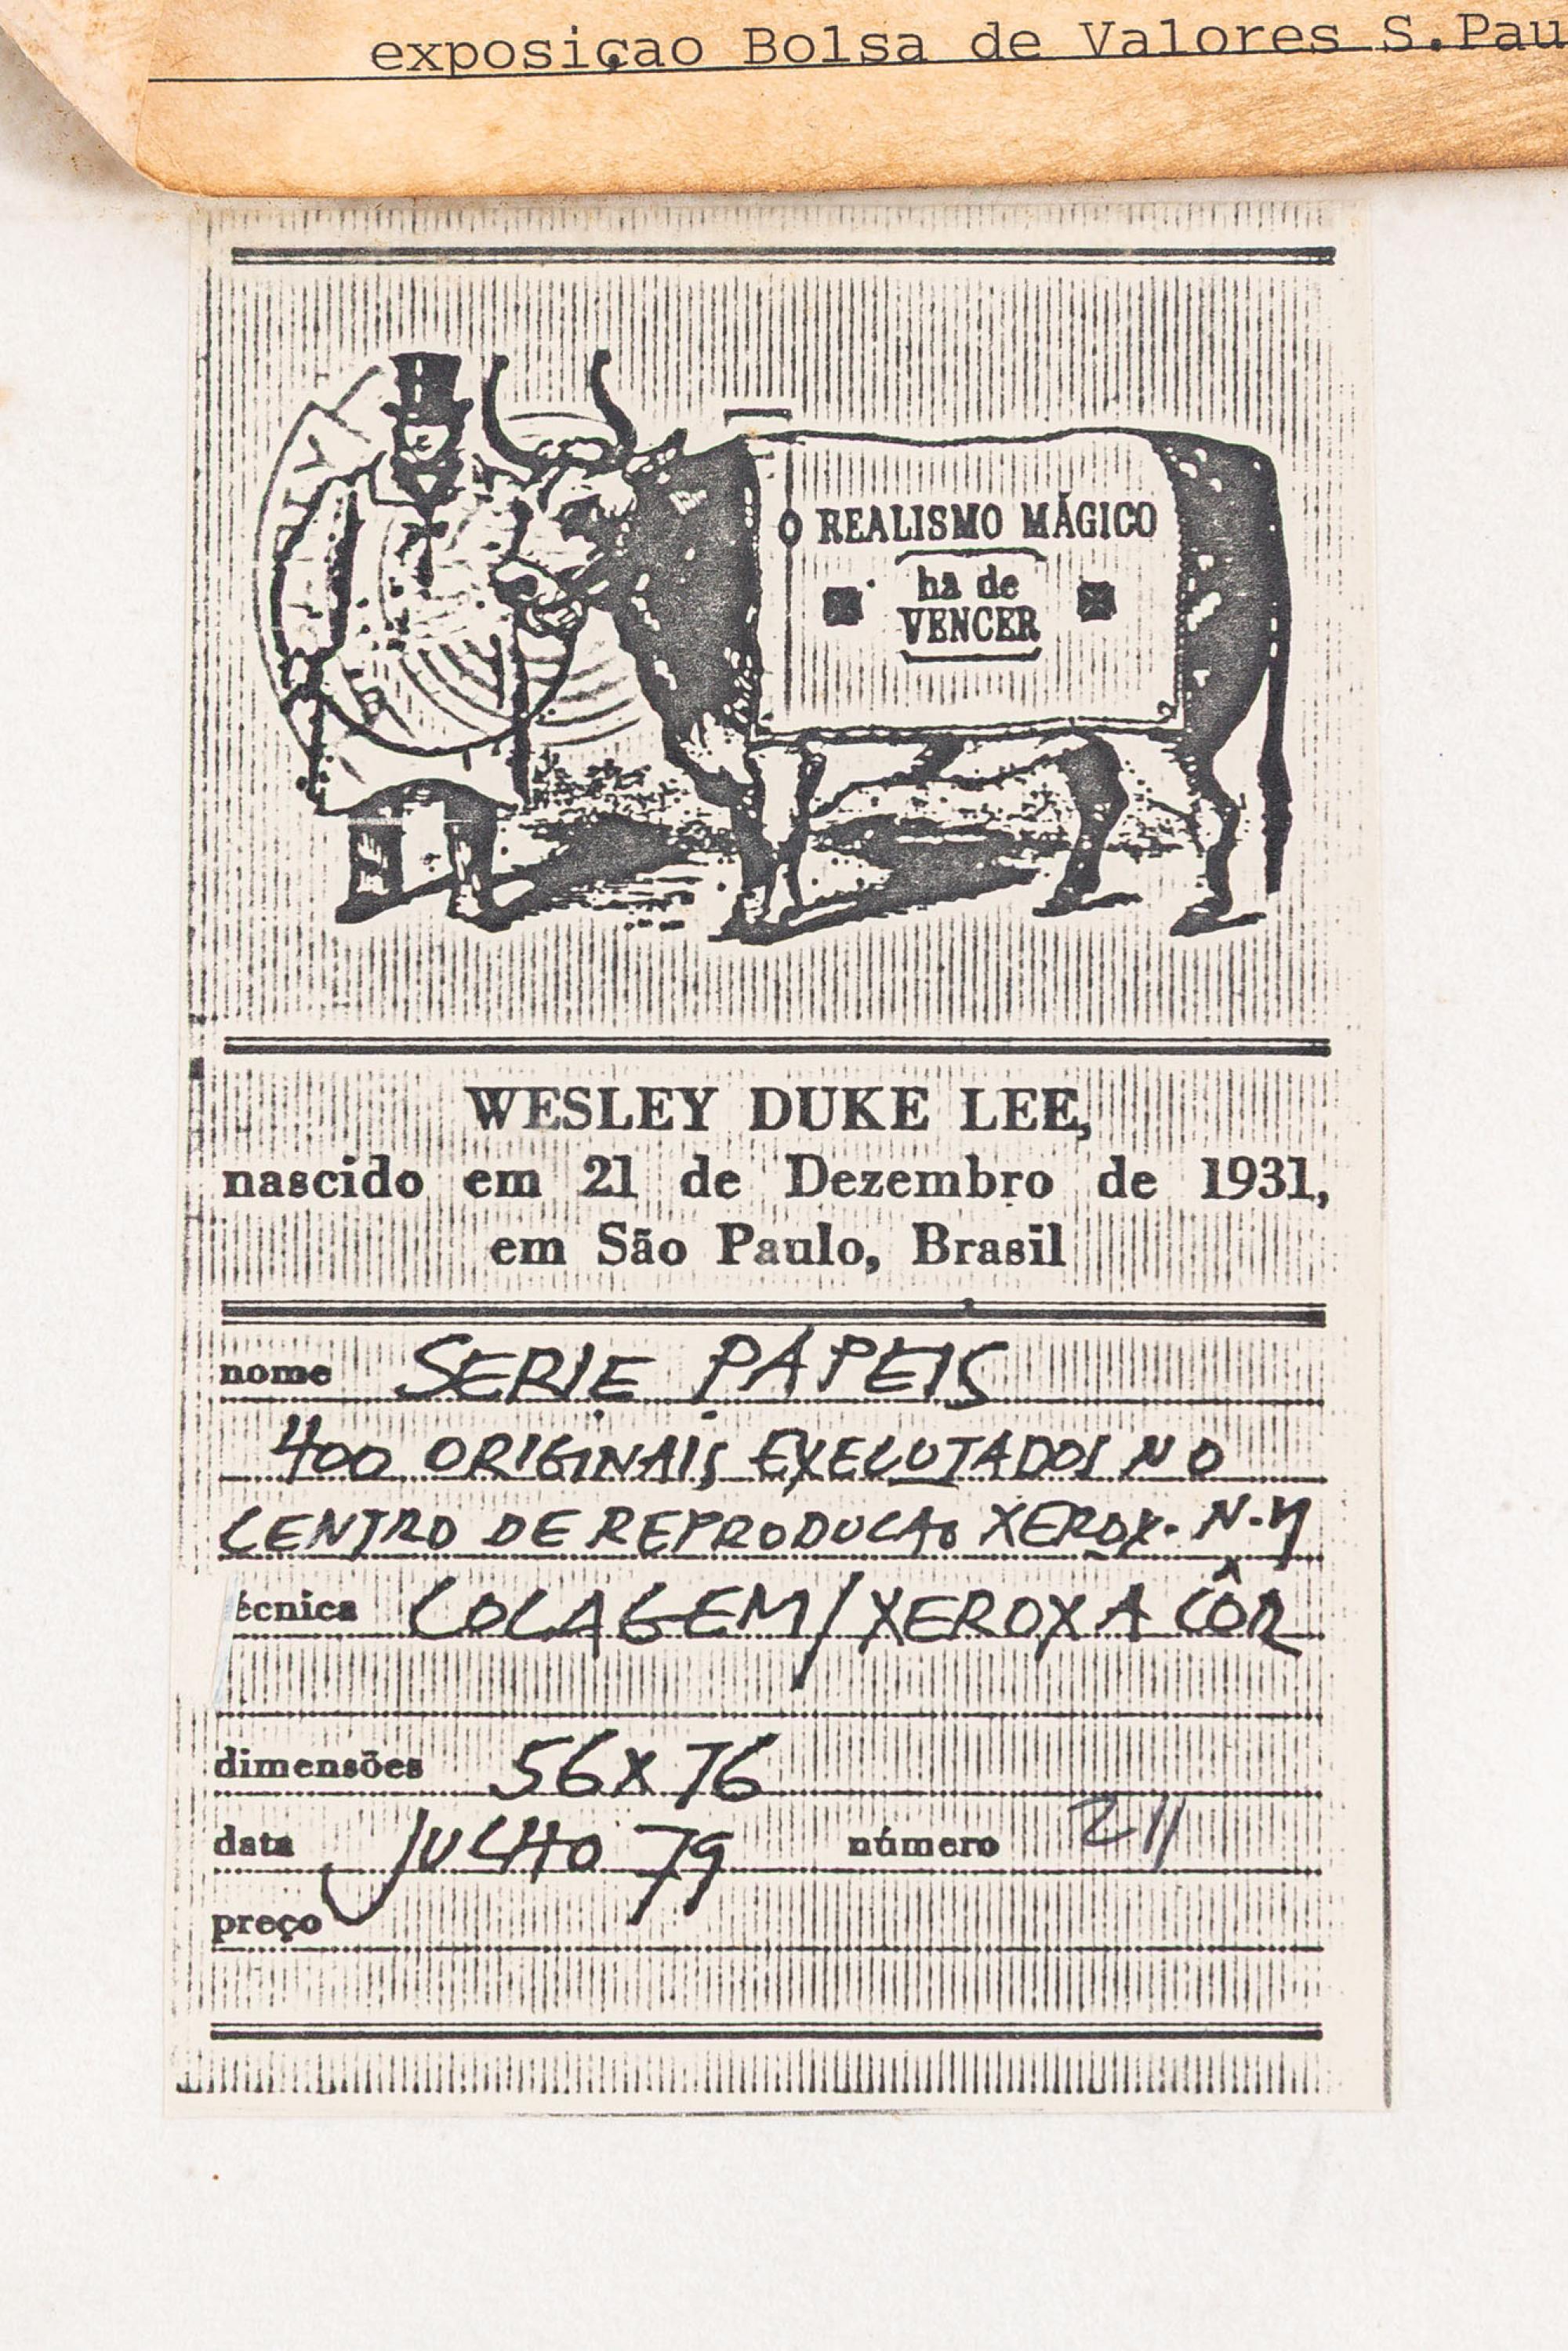 exposiçao Bolsa de Valores S.Pau
O REALISMO MÁGICO
ha de
VENCER
WESLEY DUKE LEE,
nascido em 21 de Dezembro de 1931,
em São Paulo, Brasil
nome SERIE PAPEIS
400 ORIGINAIS EXECUTADOS NO
CENTRO DE REPRODUCAO XEROX. N.Y
écnica COLAGEM/XEROX A CÔR
dimensões 56X76
data JULHO 79 número 211
preço